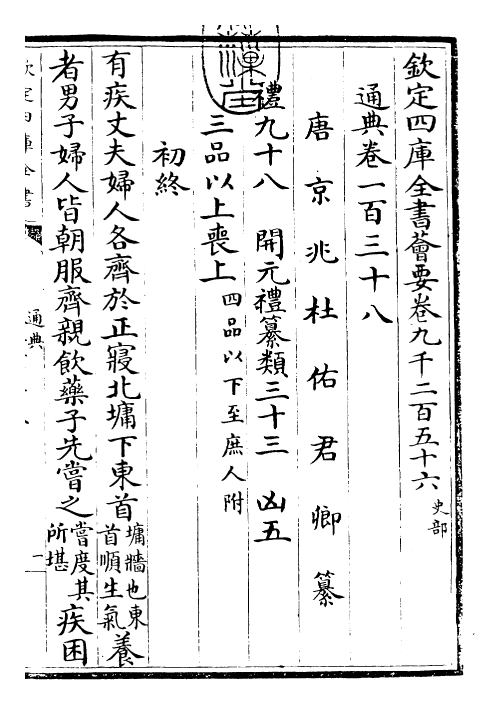 欽定四庫全書薈要卷九千二百五十六 史部
通典卷一百三十八
唐京兆杜佑君卿纂
禮九十八 開元禮纂類三十三 凶五
三品以上喪上 四品以下至庶人附
初終
有疾丈夫婦人各齊於正寢北墉下東首 墉牆也東首順生氣 養
者男子婦人皆朝服齊親飲藥子先嘗之 嘗度其所堪 疾困
欽定四庫全書
通典
一